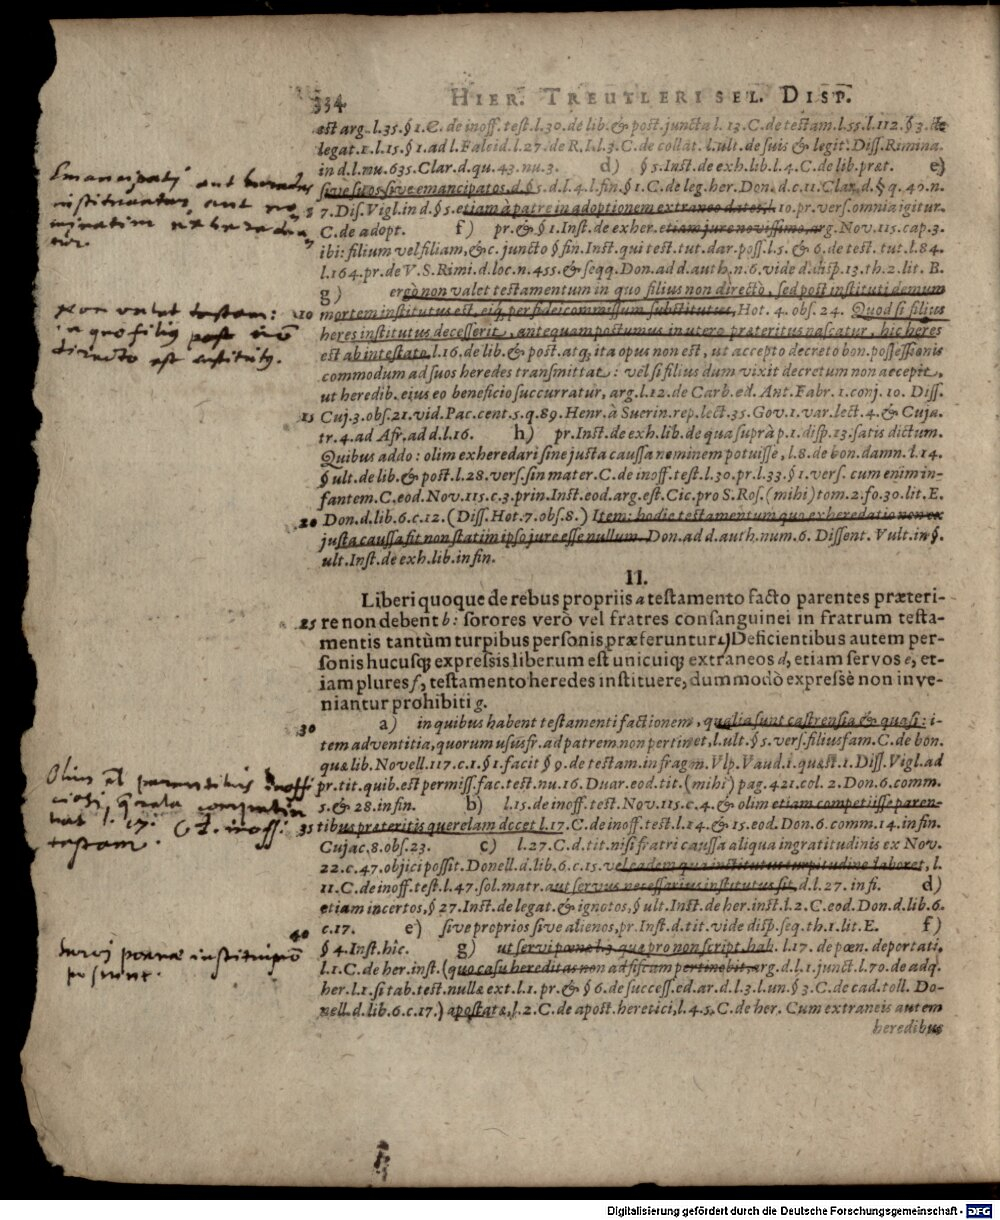 334 HIER. TREUTLERI SEL. DISP.
est arg. l. 35. § 1. C. de inoff. test. l. 30. de lib. & post. juncta l. 13. C. de testam. l. 55. l. 112. § 3. de
legat. 1. l. 15. § 1. ad l. Falcid. l. 27. de R. I. l. 3. C. de collat. l. ult. de suis & legit. Diss. Rimina.
in d. l. nu. 635. Clar. d. qu. 43. nu. 3. d) § 5. Inst. de exh. lib. l. 4. C. de lib. præt. e)
sive suos sive emancipatos. d. § 5. d. l. 4. l. fin. § 1. C. de leg. her. Don. d. c. 11. Clar. d. § q. 42. n.
Emancipati aut heredes
instituantur aut no
minatim
5 7. Dis. Vigl. in d. § 5. etiam à patre in adoptionem extraneo datos, l. 10. pr. vers. omnia igitur.
C. de adopt. f) pr. & § 1. Inst. de exher. etiam jure novissimo, arg. Nov. 115. cap. 3.
ibi: filium vel filiam, &c. juncto § fin. Inst. qui test. tut. dar. poss. l. 5. & 6. de test. tut. l. 84.
l. 164. pr. de V. S. Rimi. d. loc. n. 455. & seqq. Don. ad d. auth. n. 6. vide d. disp. 13. th. 2. lit. B.
g) ergò non valet testamentum in quo filius non directò, sed post instituti demum
non valet testam:
in quo filius post
directo est institutus.
10 mortem institutus est, eiq; per fideicommissum substitutus, Hot. 4. obs. 24. Quod si filius
heres institutus decesserit, antequam postumus in utero præteritus nascatur, hic heres
est ab intestato. l. 16. de lib. & post. atq; ita opus non est, ut accepto decreto bon. possessionis
commodum ad suos heredes transmittat: vel si filius dum vixit decretum non accepit,
ut heredib. ejus eo beneficio succurratur, arg. l. 12. de Carb. ed. Ant. Fabr. 1. conj. 10. Diss.
15 Cuj. 3. obs. 21. vid. Pac. cent. 5. q. 89. Henr. à Suerin. rep. lect. 35. Gov. 1. var. lect. 4. & Cuja.
tr. 4. ad Afr. ad d. l. 16. h) pr. Inst. de exh. lib. de qua suprà p. 1. disp. 13. satis dictum.
Quibus addo: olim exheredari sine justa caussa neminem potuisse, l. 8. de bon. damn. l. 14.
§ ult. de lib. & post. l. 28. vers. sin mater. C. de inoff. test. l. 30. pr. l. 33. § 1. vers. cum enim in-
fantem. C. eod. Nov. 115. c. 3. prin. Inst. eod. arg. est. Cic. pro S. Ros. (mihi) tom. 2. fo. 30. lit. E.
20 Don. d. lib. 6. c. 12. (Diss. Hot. 7. obs. 8.) Item: hodie testamentum quo exheredatio non ex
justa caussa fit non statim ipso jure esse nullum. Don. ad d. auth. num. 6. Dissent. Vult. in §.
ult. Inst. de exh. lib. in fin.
II.
Liberi quoque de rebus propriis a testamento facto parentes præteri-
25 re non debent b: sorores verò vel fratres consanguinei in fratrum testa-
mentis tantùm turpibus personis præferuntur c) Deficientibus autem per-
sonis hucusq; expressis liberum est unicuiq; extraneos d, etiam servos e, et-
iam plures f, testamento heredes instituere, dummodò expressè non inve-
niantur prohibiti g.
30 a) in quibus habent testamenti factionem, qualia sunt castrensia & quasi: i-
tem adventitia, quorum ususfr. ad patrem non pertinet, l. ult. § 5. vers. filiusfam. C. de bon.
quæ lib. Novell. 117. c. 1. § 1. facit § 9. de testam. in fragm. Vlp. Vaud. 1. quæst. 1. Diss. Vigl. ad
pr. tit. quib. est permiss. fac. test. nu. 16. Duar. eod. tit. (mihi) pag. 421. col. 2. Don. 6. comm.
Olim parentibus inoffi
ciosi, querela competie
bat l. 17. C. d. inoff.
testam.
5. & 28. in fin. b) l. 15. de inoff. test. Nov. 115. c. 4. & olim etiam competiisse paren-
35 tibus præteritis querelam docet l. 17. C. de inoff. test. l. 14. & 15. eod. Don. 6. comm. 14. in fin.
Cujac. 8. obs. 23. c) l. 27. C. d. tit. nisi fratri caussa aliqua ingratitudinis ex Nov.
22. c. 47. objici possit. Donell. d. lib. 6. c. 15. vel eadem qua institutus turpitudine laboret, l.
11. C. de inoff. test. l. 47. sol. matr. aut servus necessarius institutus sit, d. l. 27. in fi. d)
etiam incertos, § 27. Inst. de legat. & ignotos, § ult. Inst. de her. inst. l. 2. C. eod. Don. d. lib. 6.
40 c. 17. e) sive proprios sive alienos, pr. Inst. d. tit. vide disp. seq. th. 1. lit. E. f)
Servi poenæ institui
possunt.
§ 4. Inst. hic. g) ut servi pœnæ, quæ pro non script. hab. l. 17. de pœn. deportati,
l. 1. C. de her. inst. (quo casu hereditas non ad fiscum pertinebit, arg. d. l. 1. junct. l. 70. de adq.
her. l. 1. si tab. test. nullæ ext. l. 1. pr. & § 6. de success. ed. ar. d. l. 3. l. un. § 3. C. de cad. toll. Do-
nell. d. lib. 6. c. 17.) apostatæ, l. 2. C. de apost. heretici, l. 4. 5. C. de her. Cum extraneis autem
heredibus
Digitalisierung gefördert durch die Deutsche Forschungsgemeinschaft - DFG